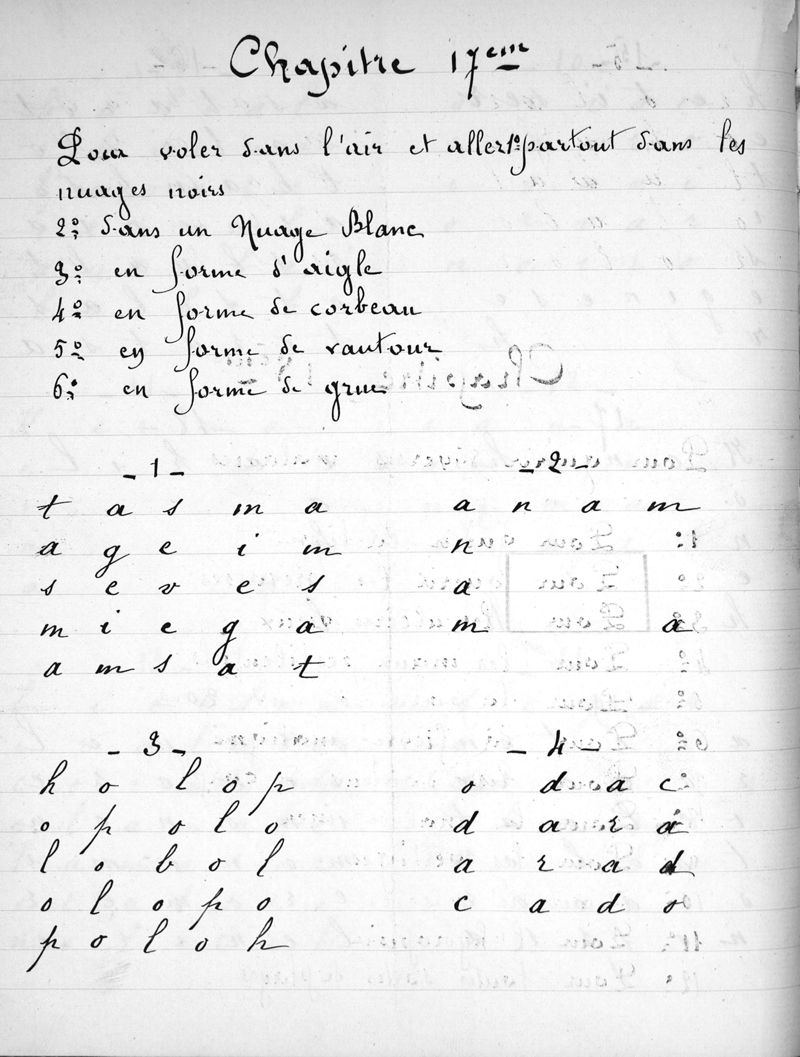 Chapitre 17em
Pour voler dans l'air et aller 1º partout dans les
nuages noirs
2º dans un Nuage Blanc
3º en forme d'aigle
4º en forme de corbeau
5º en forme de vautour
6º en forme de grue
- 1 -
t a s m a
a g e i m
s e v e s
m i e g a
a m s a t
- 2 -
a n a m
n
a
m a
- 3 -
h o l o p
o p o l o
l o b o l
o l o p o
p o l o h
- 4 -
o d a c
d a r a
a r a d
c a d o